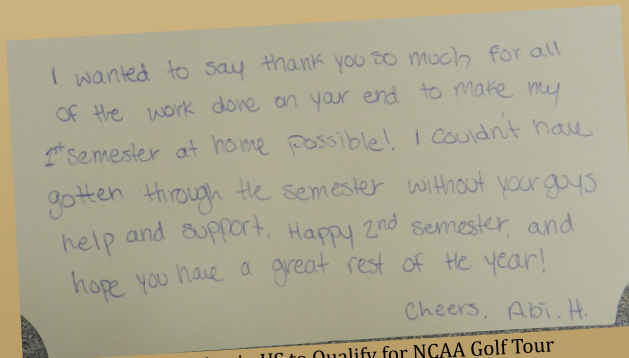 I wanted to say thank you so much for all
of the work done on your end to make my
1st semester at home possible! I couldn't have
gotten through the semester without your guys
help and support. Happy 2nd semester, and
hope you have a great rest of the year!
Cheers, Abi. H.
in US to Qualify for NCAA Golf Tour